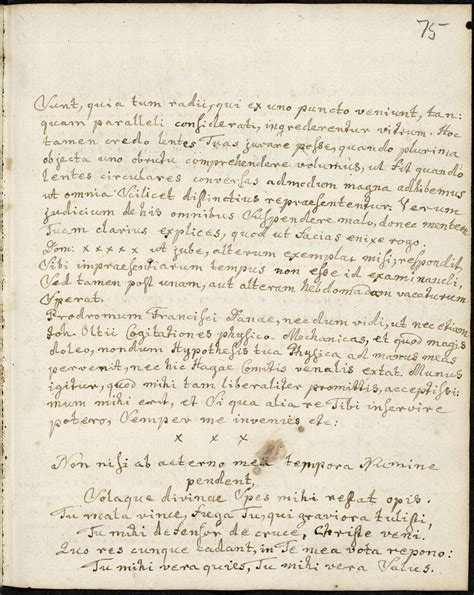 75
Sunt, quia tum radii, qui ex uno puncto veniunt, tan:
quam paralleli considerati, ingrederentur vitrum. Hoc
tamen credo lentes Tuas juvare posse, quando plurima
objecta uno obtutu comprehendere volumus, ut fit quando
lentes circulares convexas admodum magna adhibemus
ut omnia Scilicet distinctius repraesententur. Verum
judicium de his omnibus Suspendere malo, donec mentem
Tuam clarius explices, quod ut facias enixe rogo.
Dom: x x x x x ut jube, alterum exemplar misi; respondit,
Sibi impraesentiarum tempus non esse id examinandi,
Sed tamen post unam, aut alteram hebdomadam vacaturum
Sperat.
Prodromum Francisci Lanae, necdum vidi, ut nec etiam
Joh. Oltii Cogitationes physico-Mechanicas, et quod magis
doleo, nondum Hypothesis tua Physica ad manus meas
pervenit, nec hic Hagae Comitis venalis extat. Munus
igitur, quod mihi tam liberaliter promittis, acceptissi:
mum mihi erit, et Si qua alia re Tibi inservire
potero, Semper me invenies etc:
x x x
Non nisi ab aeterno mea tempora Numine
pendent,
Solaque divinae Spes mihi restat opis.
Tu mala vince, fuga Tu, qui graviora tulisti,
Tu mihi defensor de cruce, Christe veni.
Quo res cunque cadant, in Te mea vota repono:
Tu mihi vera quies, Tu mihi vera Salus.